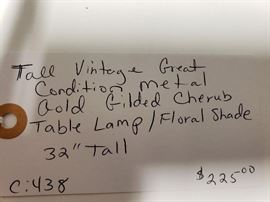 Tall Vintage Great
Condition Metal
Gold Gilded Cherub
Table Lamp/Floral Shade
32" Tall
C:438
$225.00